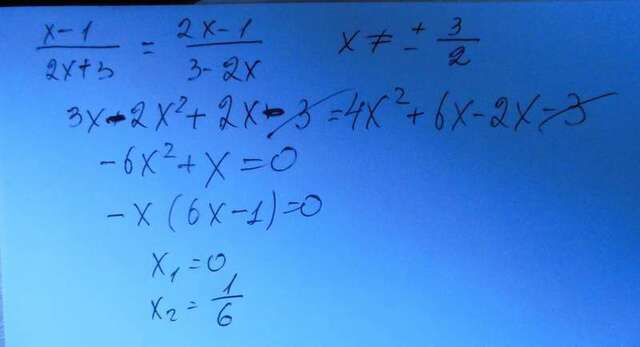 x-1/2x+3 = 2x-1/3-2x x ≠ ± 3/2
3x-2x²+2x-3=4x²+6x-2x-3
-6x²+x=0
-x(6x-1)=0
x₁=0
x₂=1/6